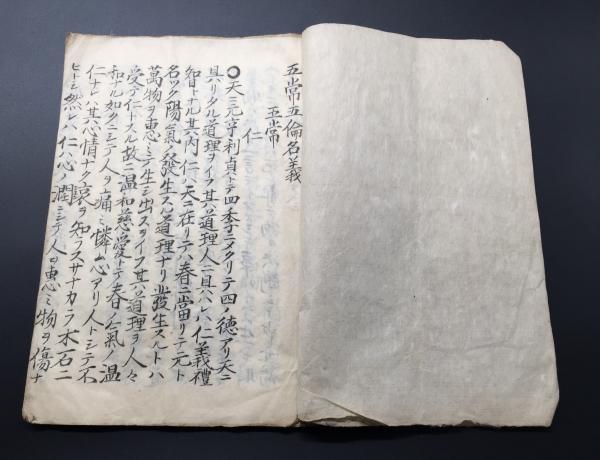 五常五倫名義
五常
仁
○天ニ元亨利貞トテ四季ニメクリテ四ノ德アリ天ニ
具リタル道理ヲイフ其道理人ニ具ハレハ仁義禮
智トナル其内仁ハ天ニ在リテハ春ニ當リテ元ト
名ツク陽氣ノ發生スル道理ナリ發生スルトハ
萬物ヲ惠ミテ生シ出スヲイフ其道理ヲ人々
受テ仁トスル故ニ温和慈愛トテ春ノ氣ノ温
和ナル如クニシテ人ヲ痛ミ憐ム心アリ人トシテ不
仁ナレハ其心情ナク哀ヲ知ラスサナカラ木石ニ
ヒトシ然レハ仁ハ心ノ潤ニシテ人ヲ惠ミ物ヲ傷ナ